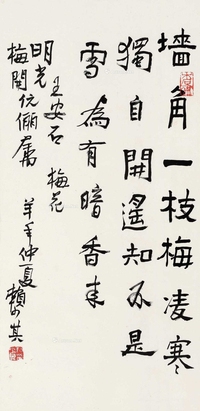 墙角一枝梅凌寒
獨自開遙知不是
雪為有暗香来
王安石 梅花
明光
梅開伉儷屬
羊年仲夏賴少其